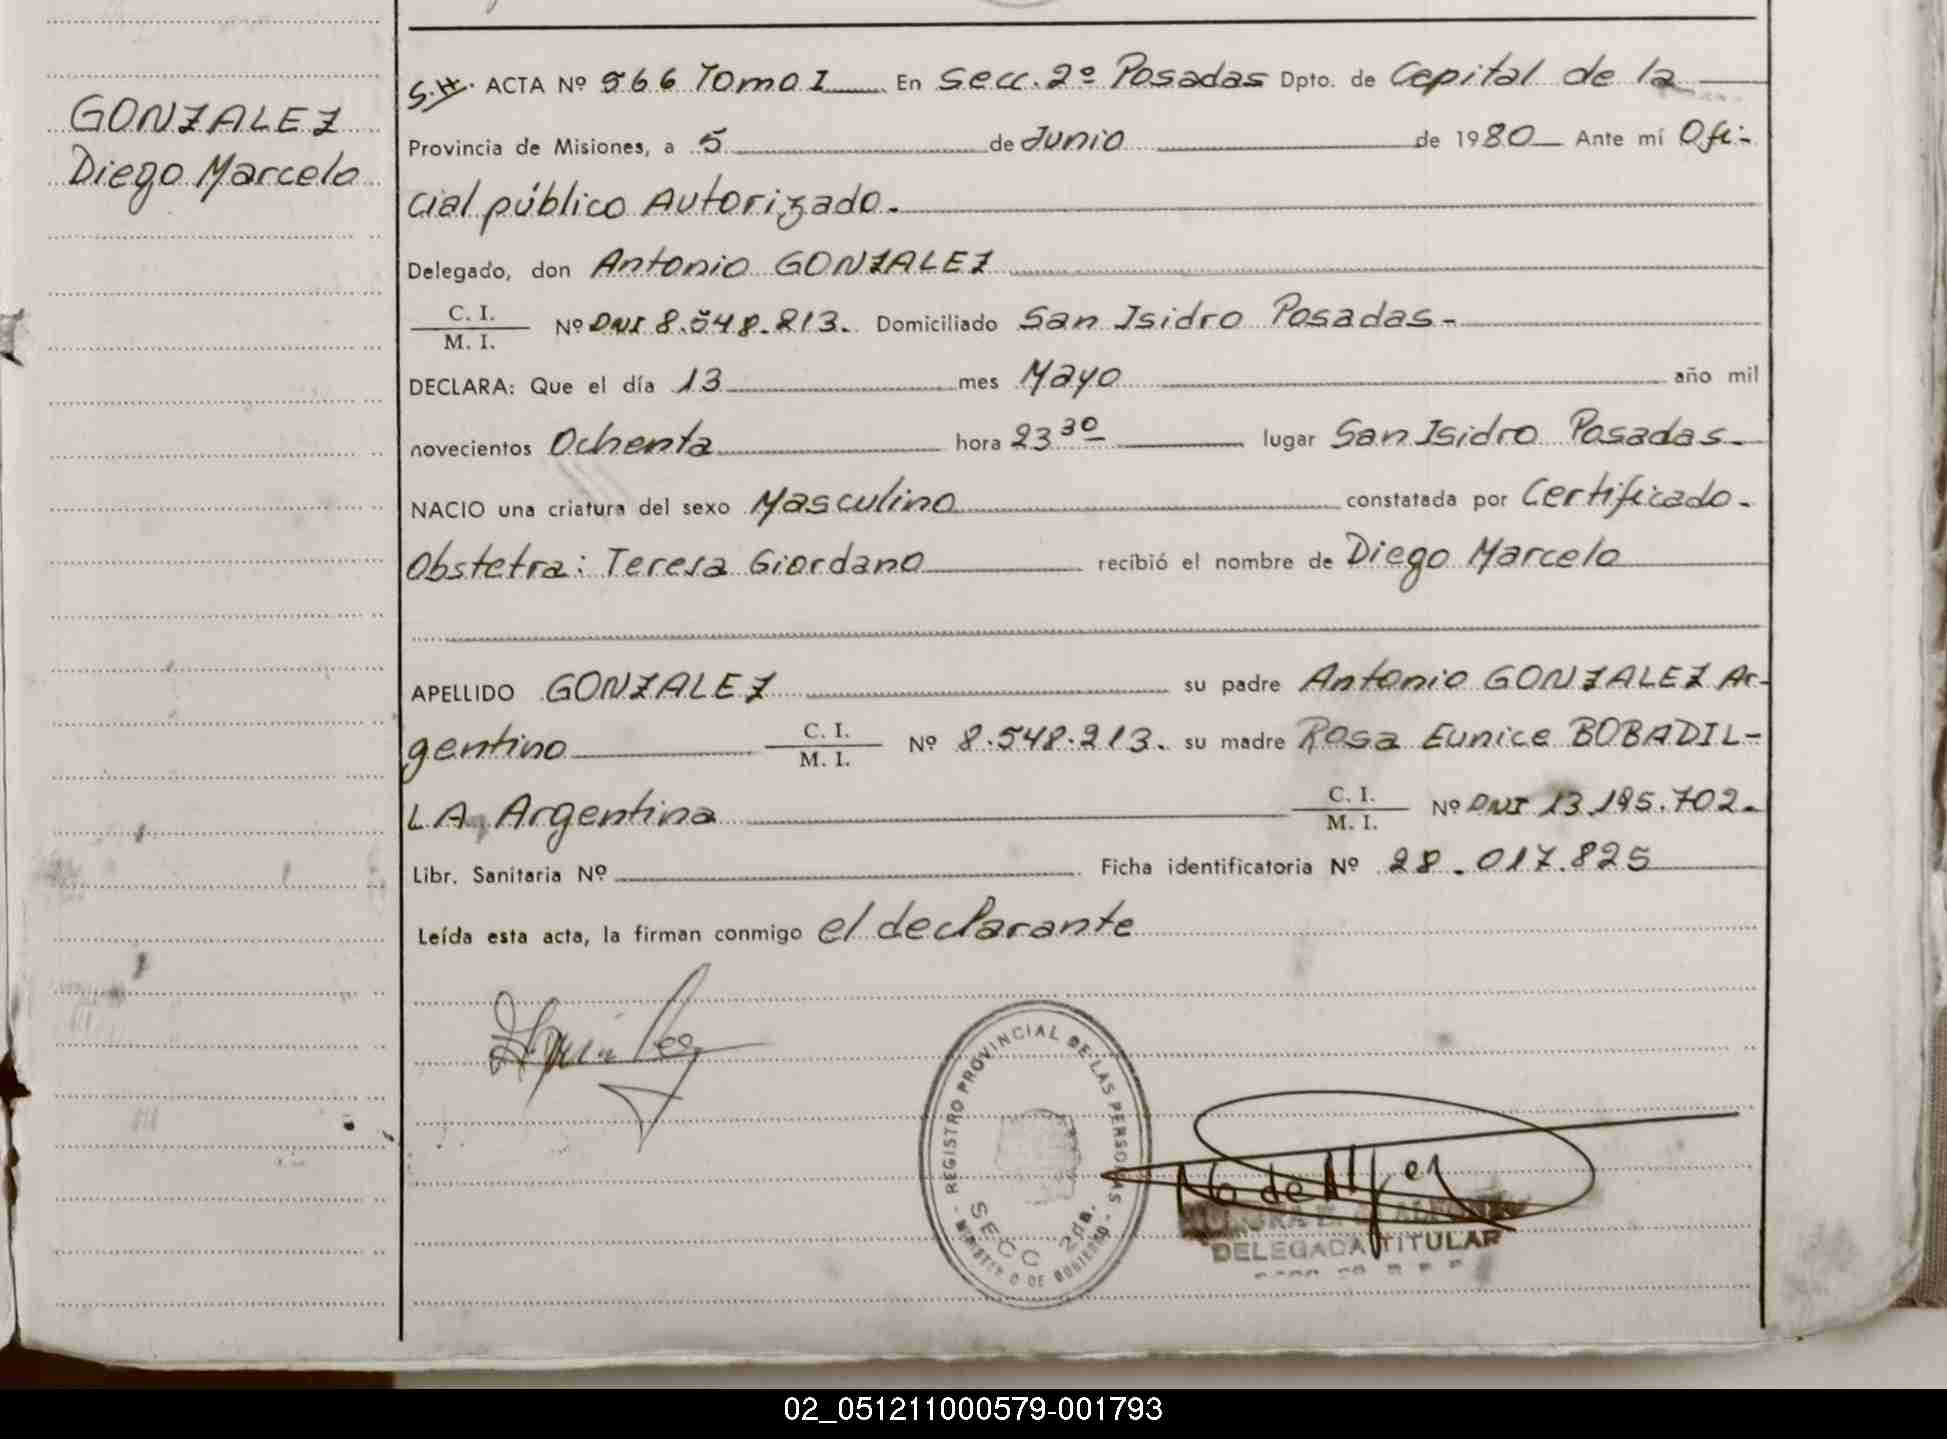 GONZALEZ
Diego Marcelo
S.H. ACTA Nº 566 Tomo I En Secc. 2º Posadas Dpto. de Capital de la
Provincia de Misiones, a 5 de Junio de 1980 Ante mí Ofi-
cial público Autorizado.
Delegado, don Antonio GONZALEZ
C. I.
M. I. Nº DNI 8.548.213. Domiciliado San Isidro Posadas-
DECLARA: Que el día 13 mes Mayo año mil
novecientos Ochenta hora 23 30 lugar San Isidro Posadas-
NACIO una criatura del sexo Masculino constatada por Certificado-
Obstetra: Teresa Giordano recibió el nombre de Diego Marcelo
APELLIDO GONZALEZ su padre Antonio GONZALEZ Ar-
gentino C. I. M. I. Nº 8.548.213. su madre Rosa Eunice BOBADIL-
LA, Argentina C. I. M. I. Nº DNI 13.195.702.
Libr. Sanitaria Nº Ficha identificatoria Nº 28.017.825
Leída esta acta, la firman conmigo el declarante
REGISTRO PROVINCIAL DE LAS PERSONAS
SECC 2da.
MINISTERIO DE GOBIERNO
DELEGADA TITULAR
02_051211000579-001793